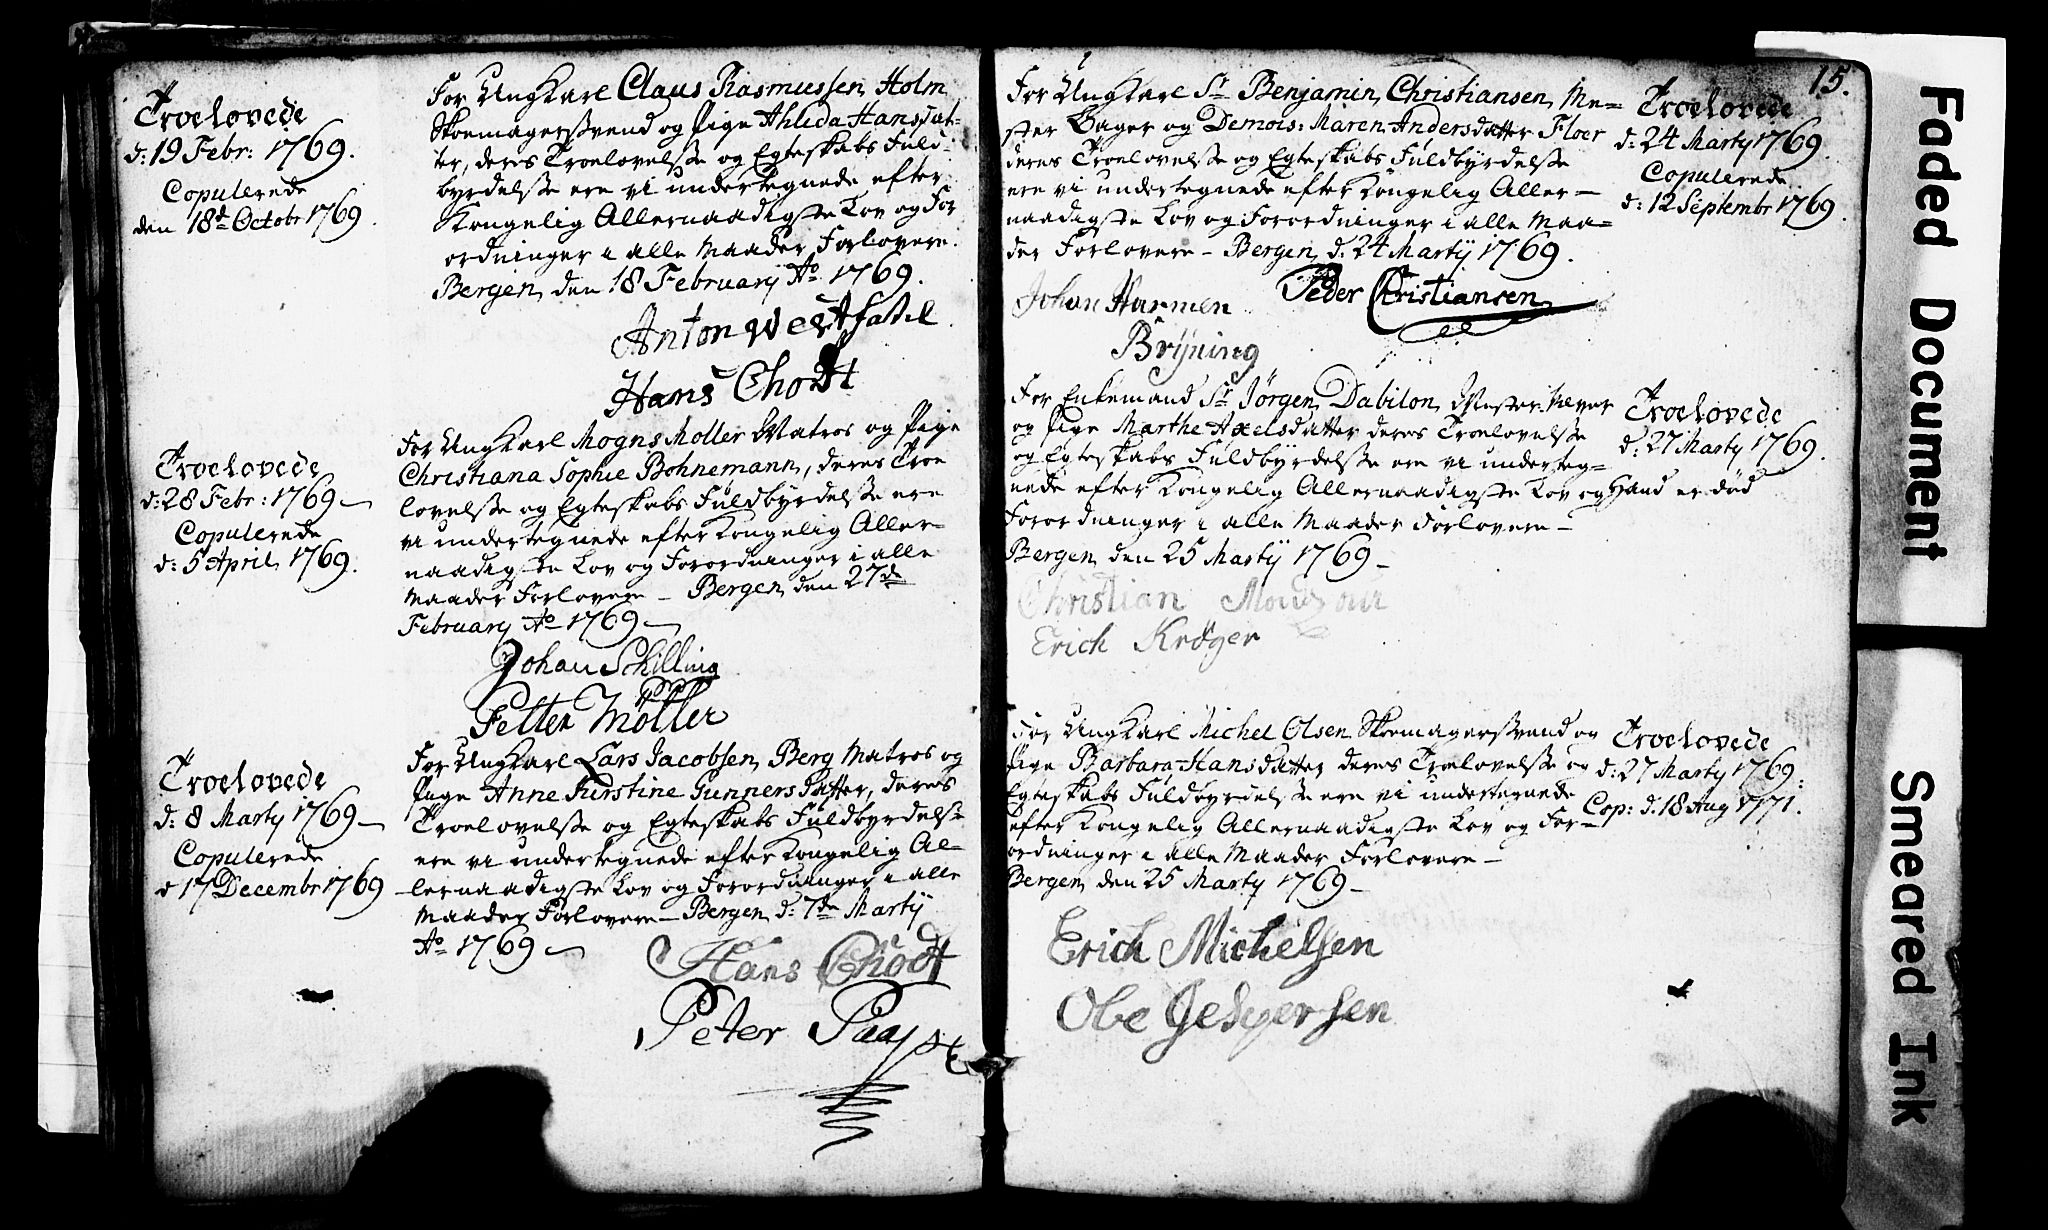 Troelovede
d: 19 Febr: 1769.
Copulerede
den 18d Octobr 1769.
For Ungkarl Claus Rasmussen Holm
Skoemagerssvend og Pige Ahlida Hansdat-
ter, deres Troelovelsse og Egteskabs Fuld-
byrdelsse ere vi undertegnede efter
Kongelig Allernaadigste Lov og For
ordninger i alle Maader Forlovere.
Bergen den 18 February Ao 1769.
Anton Westfahl
Hans Chodt
Troelovede
d: 28 Febr: 1769
Copulerede
d: 5 April 1769.
For Ungkarl Mogns Moller Matros og Pige
Christiana Sophie Bohnemann, deres Troe
lovelsse og Egteskabs Fuldbyrdelsse ere
vi undertegnede efter Kongelig Aller-
naadigste Lov og Forordninger i alle
Maader Forlovere - Bergen den 27de
February Ao 1769
Johan Schilling
Petter Möller
Troelovede
d: 8 Marty 1769
Copulerede
d 17 Decembr 1769
For Ungkarl Lars Jacobsen Berg Matros og
Pige Anne Kirstine Gunners Datter, deres
Troelovelsse og Egteskabs Fuldbyrdelsse
ere vi undertegnede efter Kongelig Al-
lernaadigste Lov og Forordninger i alle
Maader Forlovere - Bergen d: 7de Martij
Ao 1769
Hans Chodt
Peter Paaske
15.
For Ungkarl Sr Benjamin Christiansen Me=
ster Bager og Demois: Maren Andersdatter Floer
deres Troelovelsse og Egteskabs Fuldbyrdelsse
ere vi undertegnede efter Kongelig Aller-
naadigste Lov og Forordninger i alle Maa=
der Forlovere - Bergen d. 24 Martij 1769.
Johan Harmen
Brÿning
Peder Christiansen
Troelovede
d: 24 Marty 1769.
Copulerede
d: 12 Septembr 1769.
For Enkemand Sr Jörgen Dabilon Mester Væver
og Pige Marthe Axelsdatter deres Troelovelsse
og Egteskabs Fuldbyrdelsse ere vi underteg=
nede efter Kongelig Allernaadigste Lov og
Forordninger i alle Maader Forlovere -
Bergen den 25 Martij 1769 -
Christian
Erich Kröger
Troelovede
d: 27 Marty 1769.
Hand er död
For Ungkarl Michel Olsen Skoemagerssvend og
Pige Barbara Hansdatter deres Troelovelsse og
Egteskabs Fuldbyrdelsse ere vi undertegnede
efter Kongelig Allernaadigste Lov og For-
ordninger i alle Maader Forlovere -
Bergen den 25 Marty 1769 -
Erich Michelsen
Obe Jespersen
Troelovede
d: 27 Marty 1769:
Cop: d: 18 Aug 1771.
Faded Document
Smeared Ink